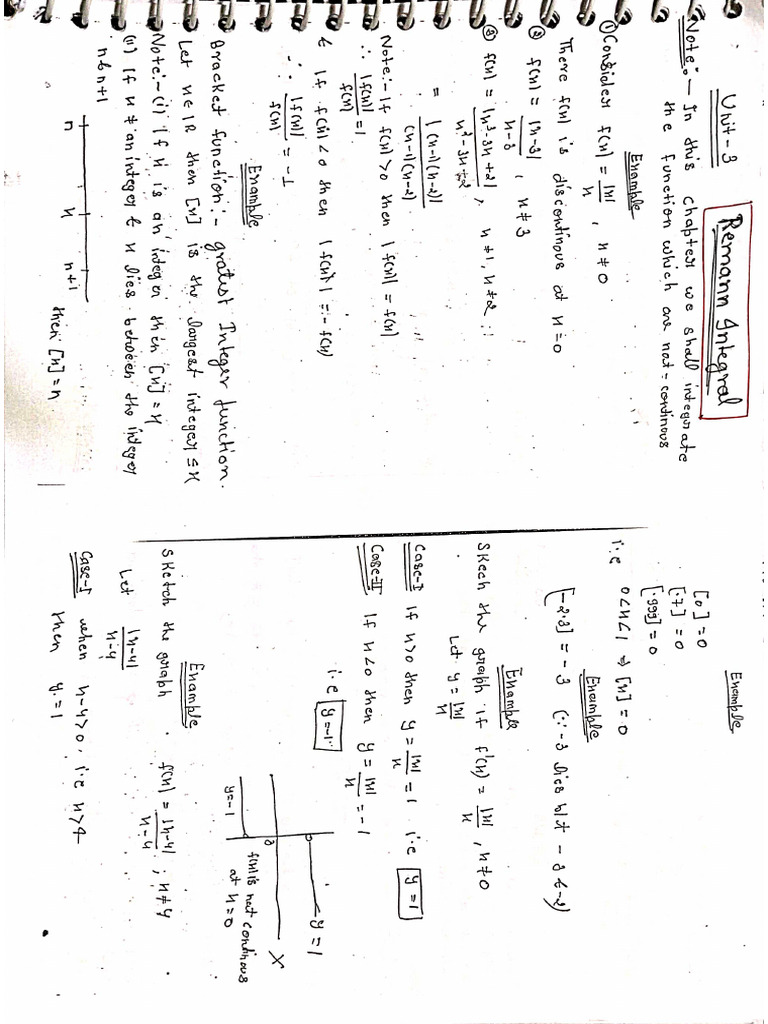 Unit-3
Remann Integral
Note:- In this chapter we shall integrate
the function which are not-continous
Example
① Consider f(x) = |x|/x , x ≠ 0
There f(x) is discontinous at x=0
② f(x) = |x-3|/x-3 , x ≠ 3
③ f(x) = |x²-3x+2|/x²-3x+2 , x ≠ 1, x ≠ 2
= |(x-1)(x-2)|/(x-1)(x-2)
Note:- If f(x)>0 then |f(x)| = f(x)
∴ |f(x)|/f(x) = 1
& If f(x)<0 then |f(x)| = -f(x)
∴ |f(x)|/f(x) = -1
Example
Bracket function:- gratest Integer function.
Let x∈IR then [x] is the largest integer ≤ x
Note:-(i) If x is an integer then [x] = x
(ii) If x ≠ an integer & x lies between the integer
n & n+1
n x n+1
then [x] = n
Example
[0] = 0
[.7] = 0
[.999] = 0
i.e 0<x<1 ⇒ [x] = 0
Example
[-2.3] = -3 (∵ -3 lies b/t -3 & -2)
Example
Skech the graph if f'(x) = |x|/x , x ≠ 0
Let y = |x|/x
Case-I If x>0 then y = |x|/x = 1 i.e y=1
Case-II If x<0 then y = |x|/x = -1
i.e y=-1
y=1
X
y=-1
f(x) is not continous
at x=0
Example
Sketch the graph. f(x) = |x-4|/x-4 ; x ≠ 4
Let |x-4|/x-4
Case-I when x-4>0, i.e x>4
then y = 1